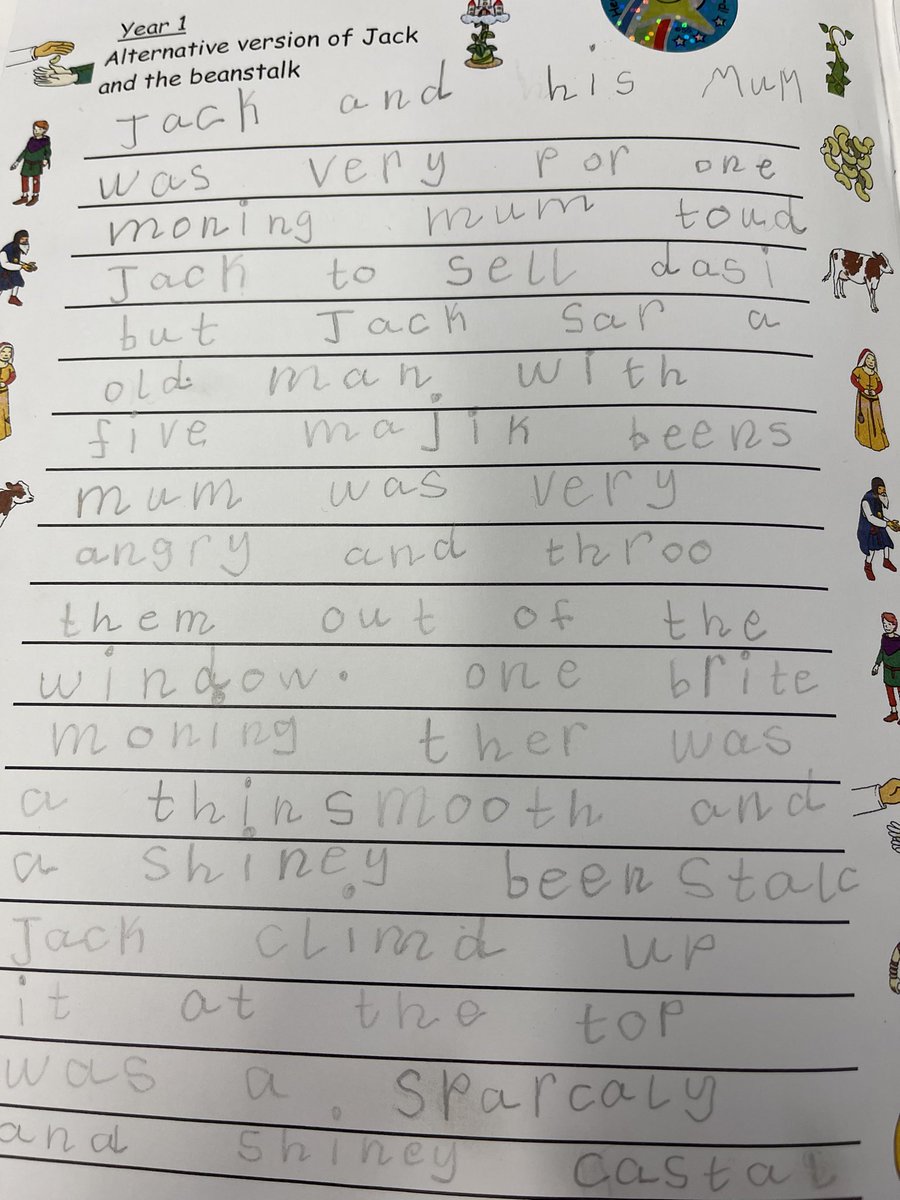 Year 1
Alternative version of Jack
and the beanstalk
Jack and his Mum
was very por one
moning mum toud
Jack to sell dasi
but Jack sar a
old man with
five majik beens
mum was very
angry and throo
them out of the
window. one brite
moning ther was
a thin smooth and
a shiney beenstalc
Jack climd up
it at the top
was a sparcaly
and shiney castal